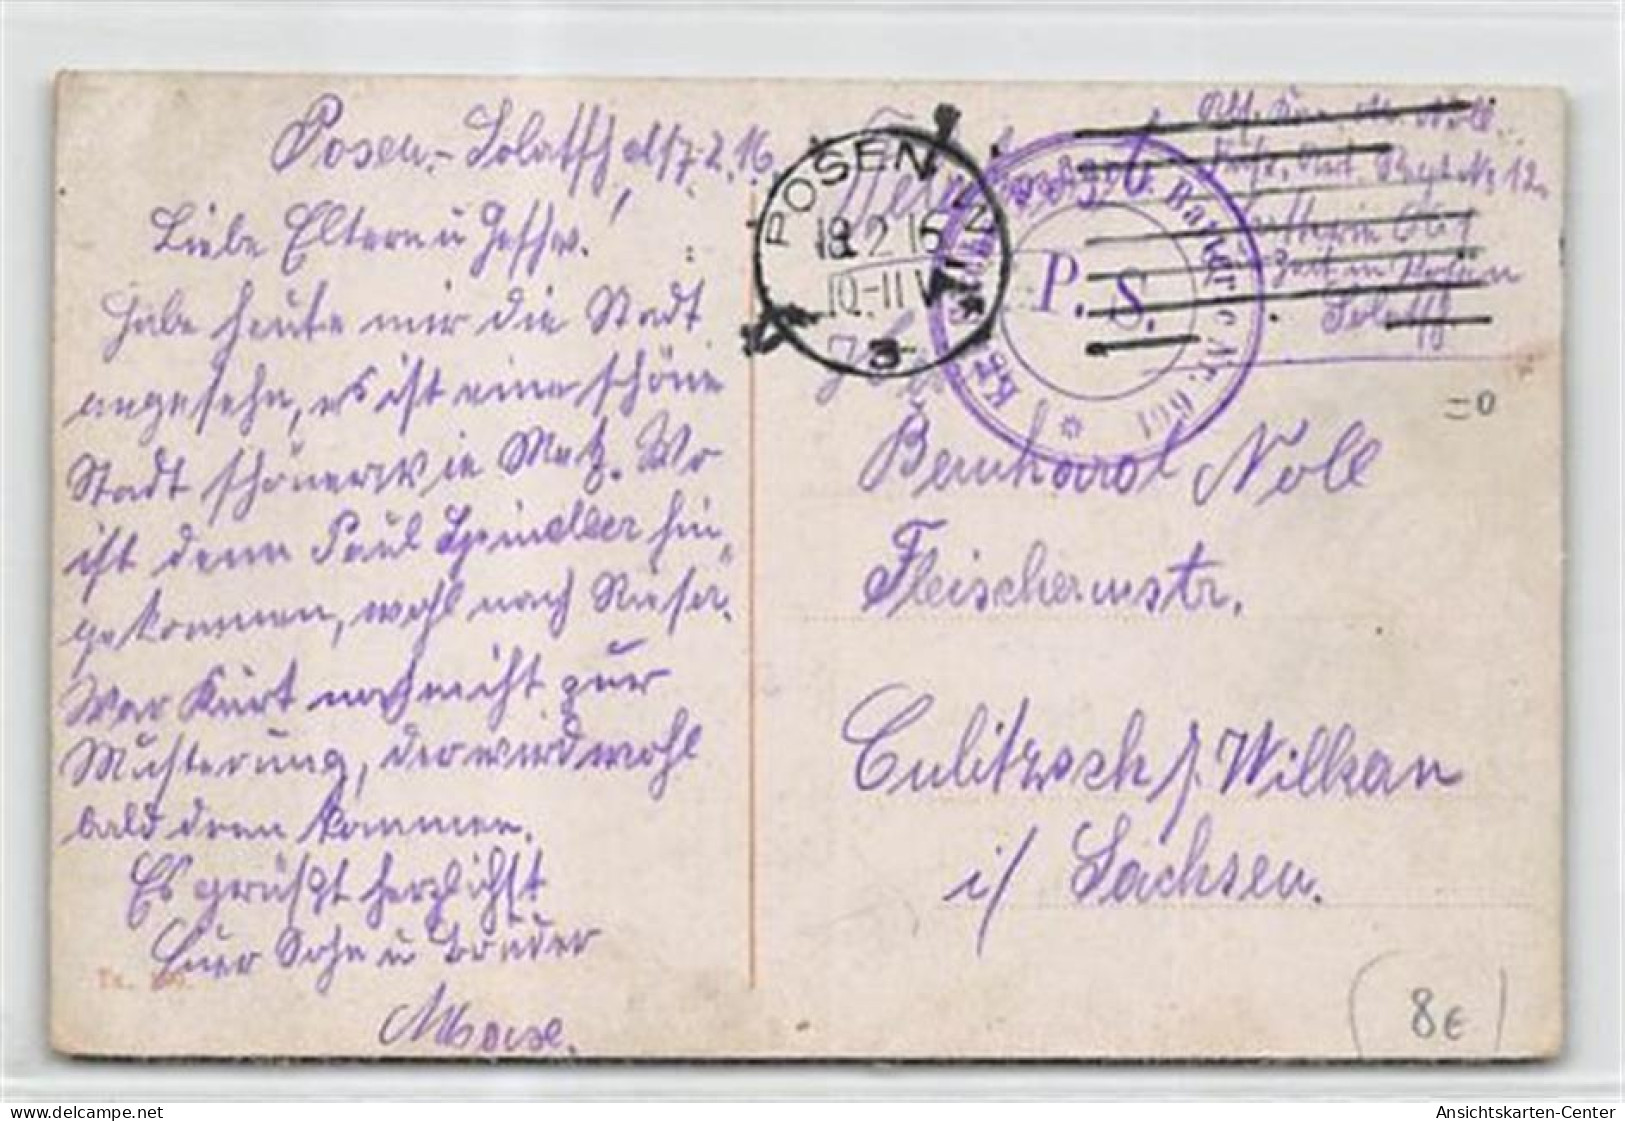 Posen-Solatsch d 17.2.16
Liebe Eltern u Geschw.!
Habe heute mir die Stadt
angesehn, es ist eine schöne
Stadt schöner wie Metz. Wo
ist denn Paul Spindler hin-
gekommen, wohl nach Riesa.
War Kurt noch nicht zur
Musterung, der wird wohl
bald dran kommen.
Es grüßt herzlichst
Euer Sohn u Bruder
POSEN
18.2.16
10-11 V
3
P. S.
Nr. 12
Posen
Bernhard Noll
Fleischermstr.
Culitzsch / Wilkau
i/ Sachsen.
8€
Ansichtskarten-Center